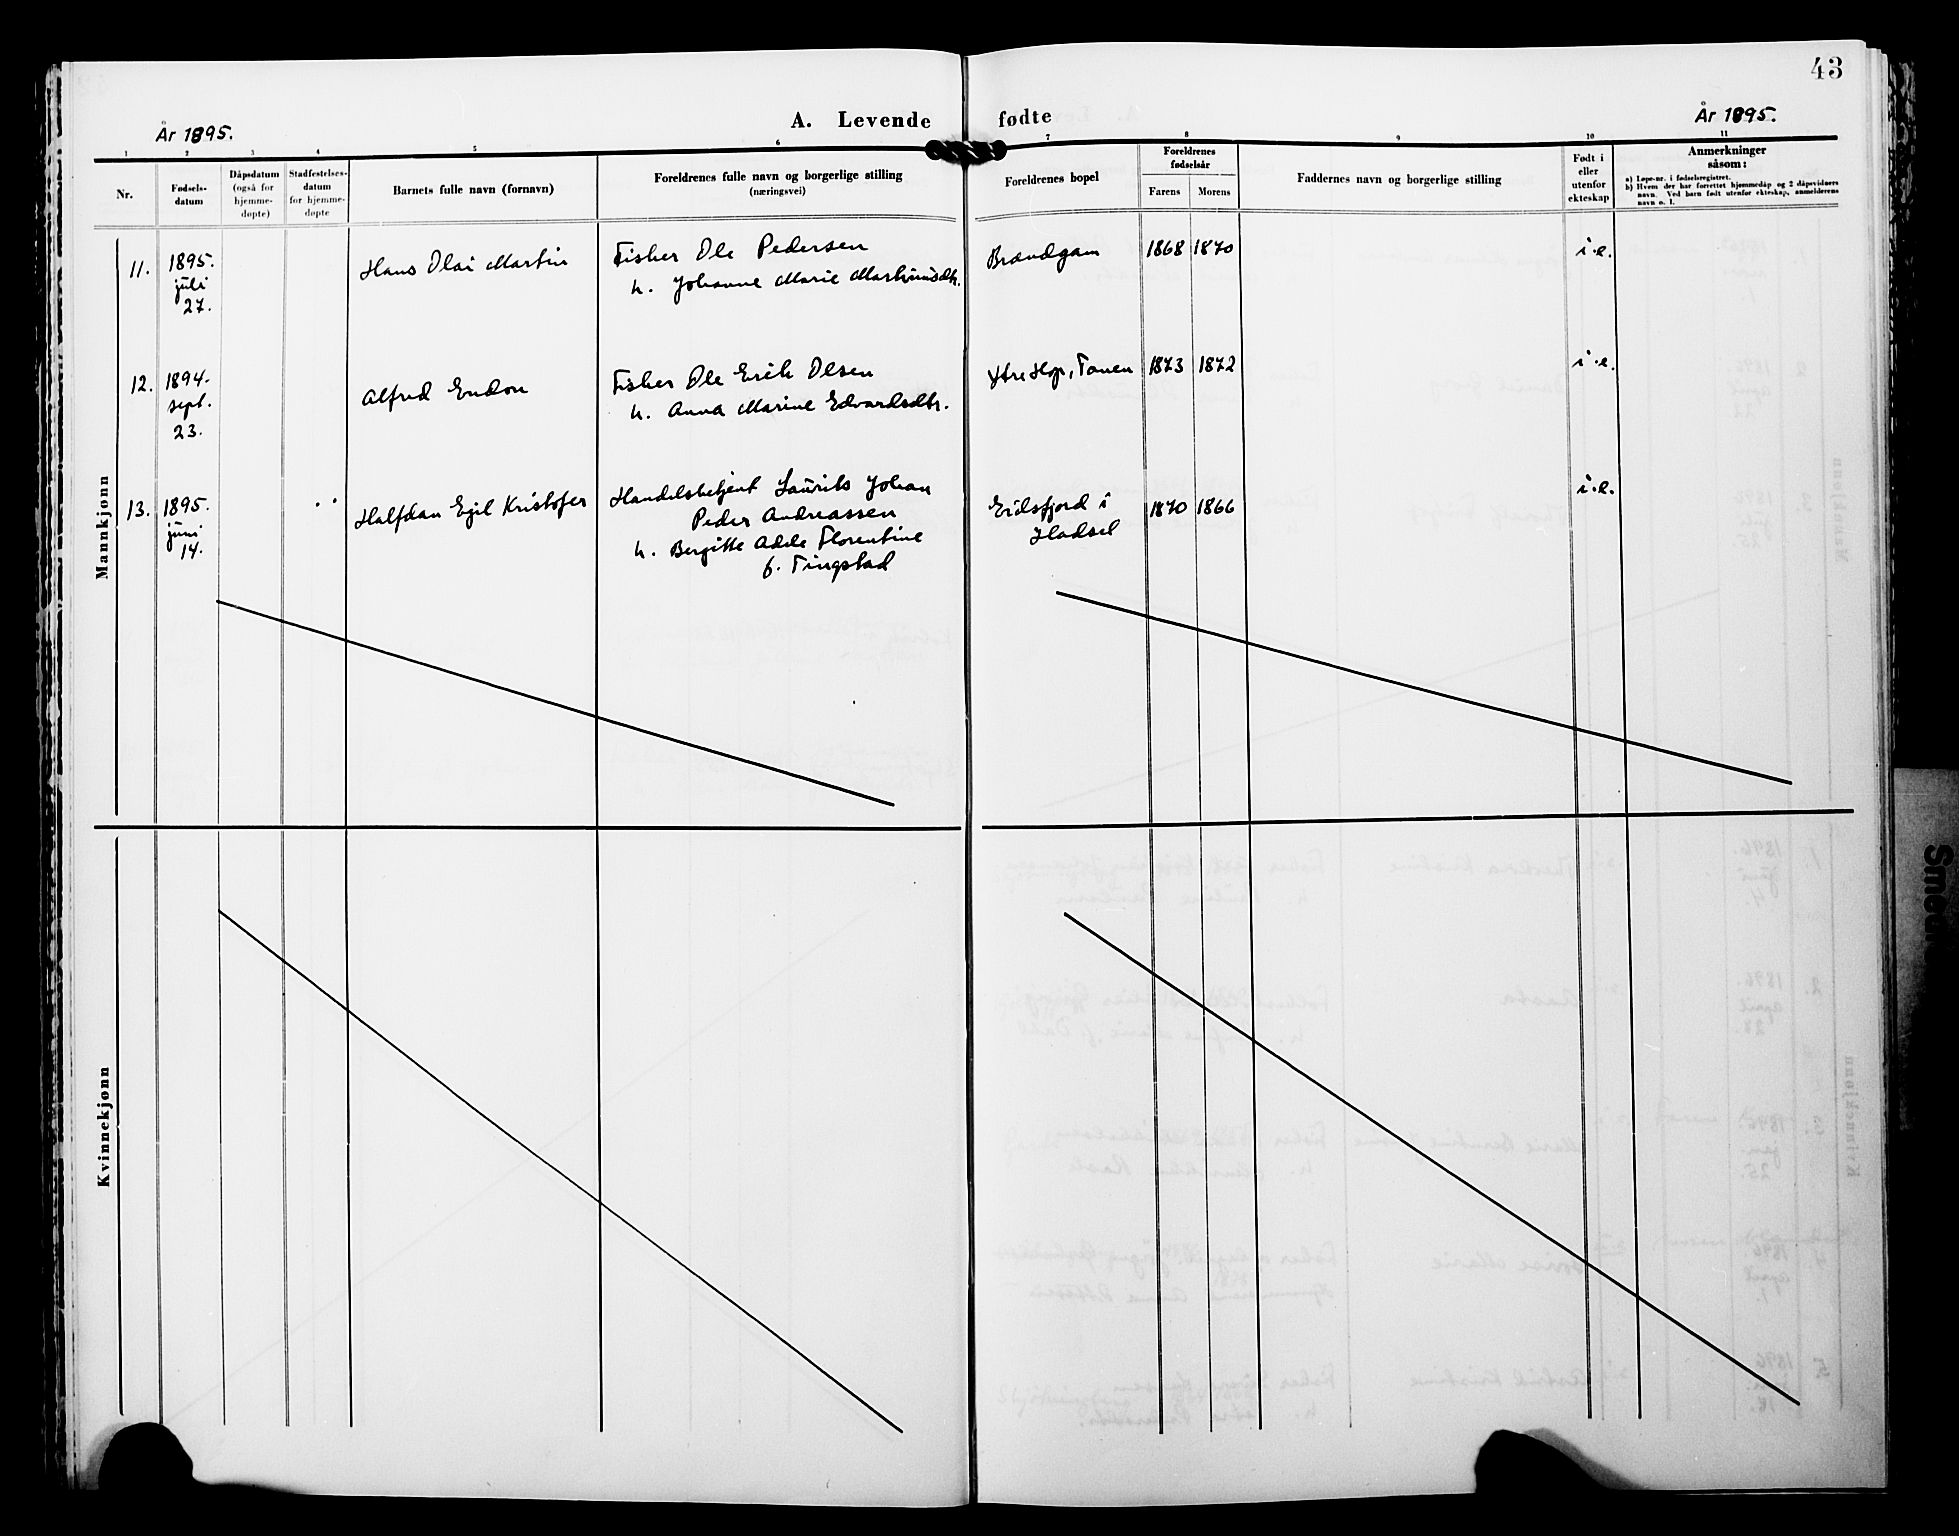 43
År 1895.
A. Levende fødte
År 1895.
1 2 3 4 5 6 7 8 9 10 11
Nr.
Fødsels-
datum
Dåpsdatum
(også for
hjemme-
døpte)
Stadfestelses-
datum
for hjemme-
døpte
Barnets fulle navn (fornavn)
Foreldrenes fulle navn og borgerlige stilling
(næringsvei)
Foreldrenes bopel
Foreldrenes
fødselsår
Farens Morens
Faddernes navn og borgerlige stilling
Født i
eller
utenfor
ekteskap
Anmerkninger
såsom:
a) Løpe-nr. i fødselsregistret.
b) Hvem der har forrettet hjemmedåp og 2 dåpsvidners
navn. Ved barn født utenfor ekteskap, anmelderens
navn o. l.
Mannkjønn
11.
1895.
juli
27.
Hans Olai Martin
Fisker Ole Pedersen
h. Johanne Marie Martinusdtr.
Brændgam
1868 1870
i.e.
12.
1894.
sept.
23.
Alfred Endon
Fisker Ole Erik Olsen
h. Anna Marine Edvardsdtr.
Ytre Hop, Tanen
1873 1872
i.e.
13.
1895.
juni
14.
Halfdan Egil Kristofer
Handelsbetjent Laurits Johan
Peder Andreassen
h. Bergitte Adele Florentine
f. Tingstad
Eidsfjord i
Hadsel
1870 1866
i.e.
Kvinnekjønn